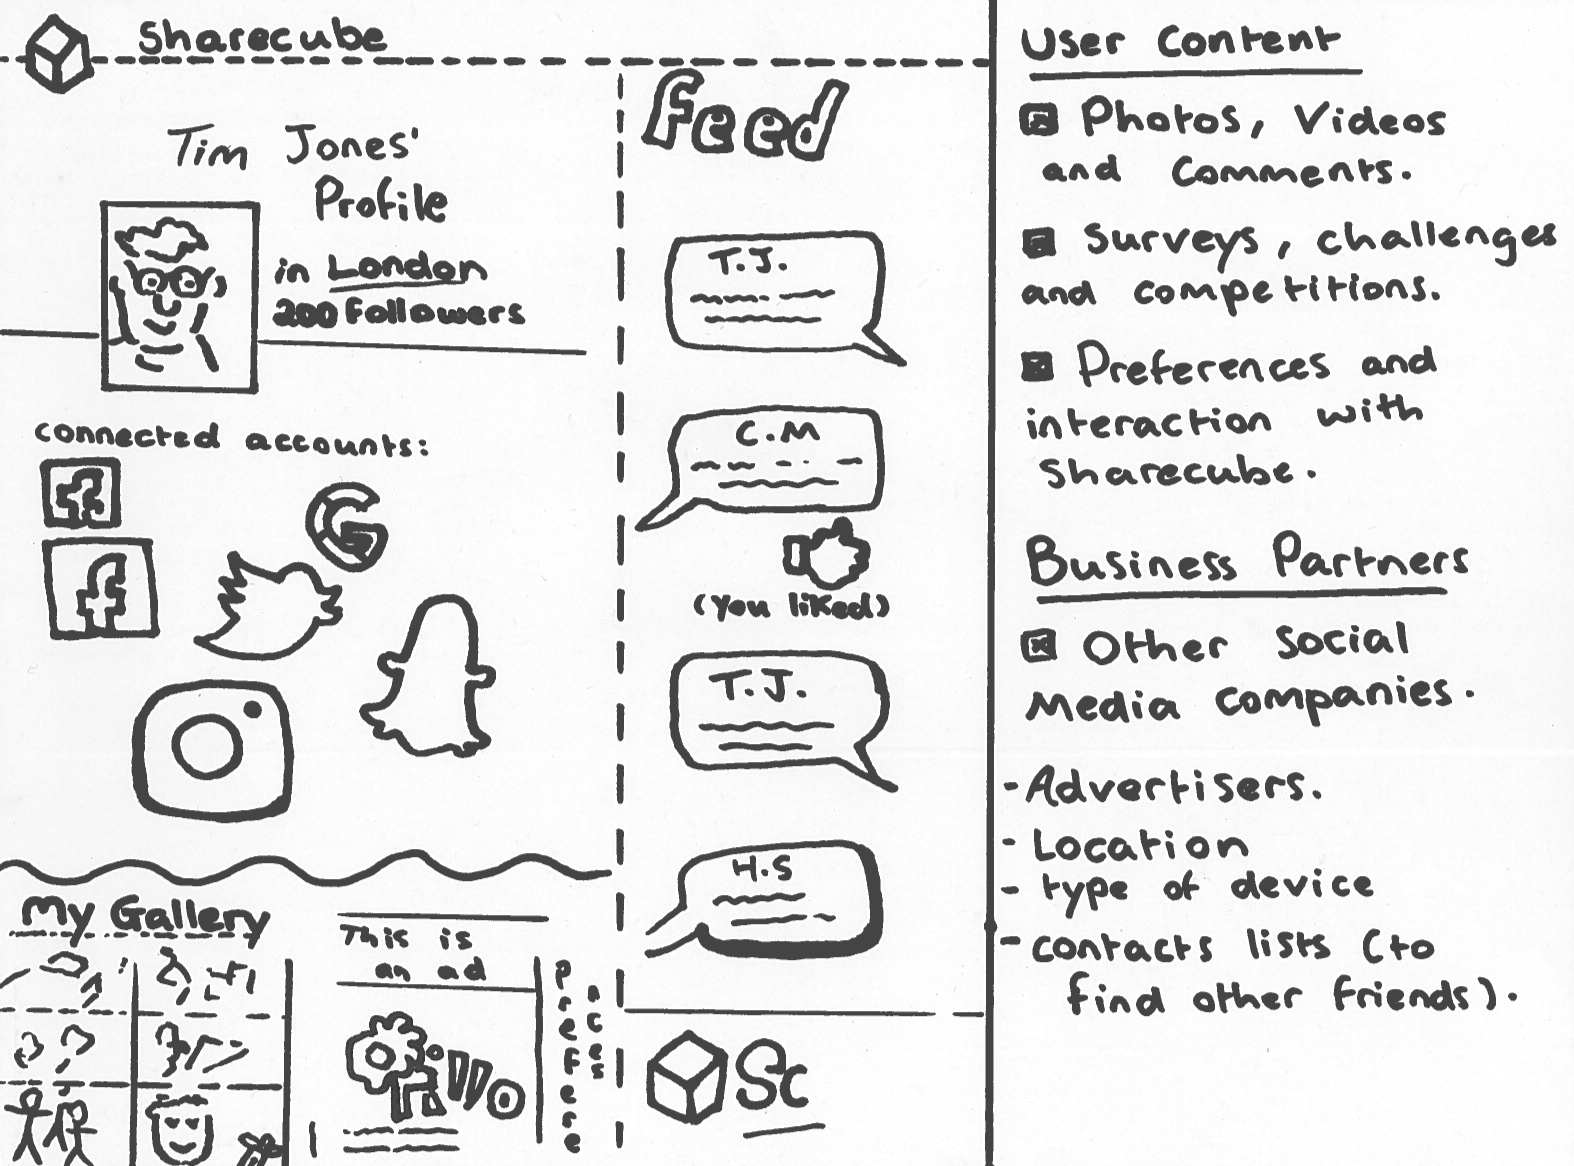 Sharecube
Tim Jones'
Profile
in London
200 Followers
connected accounts:
My Gallery
This is
an ad
Preferences
Feed
T.J.
C.M
(You liked)
T.J.
H.S
Sc
User Content
Photos, Videos
and Comments.
Surveys, challenges
and competitions.
Preferences and
interaction with
Sharecube.
Business Partners
Other Social
Media companies.
- Advertisers.
- Location
- type of device
- contacts lists (to
find other friends).